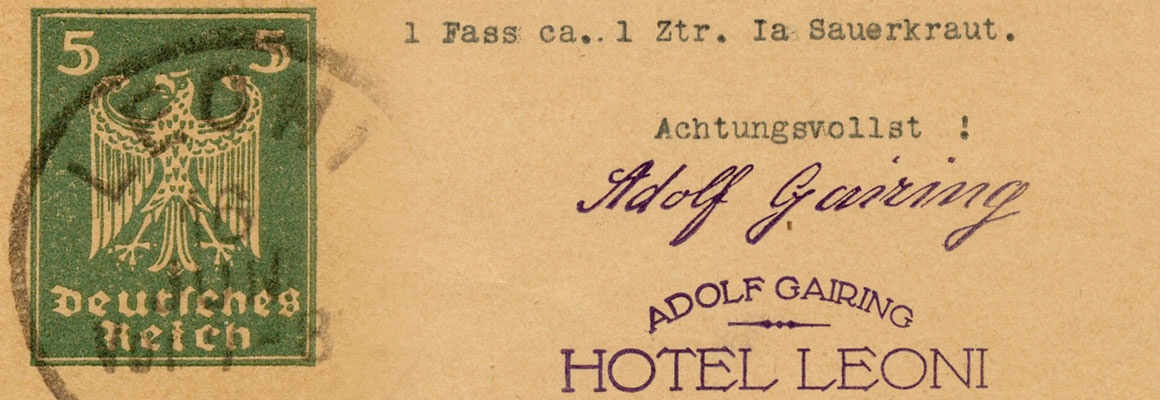 5 5
1 Fass ca. 1 Ztr. Ia Sauerkraut.
Achtungsvollst !
Adolf Gairing
ADOLF GAIRING
HOTEL LEONI
LEONI
JUN
Deutsches
Reich